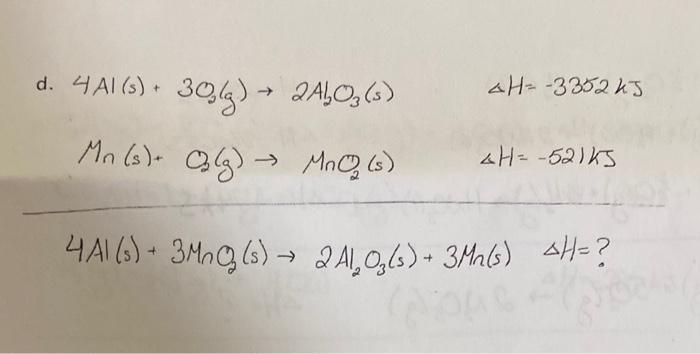 d. 4Al(s) + 3O₂(g) → 2Al₂O₃(s) ΔH= -3352 kJ
Mn(s) + O₂(g) → MnO₂(s) ΔH= -521 kJ
4Al(s) + 3MnO₂(s) → 2Al₂O₃(s) + 3Mn(s) ΔH=?